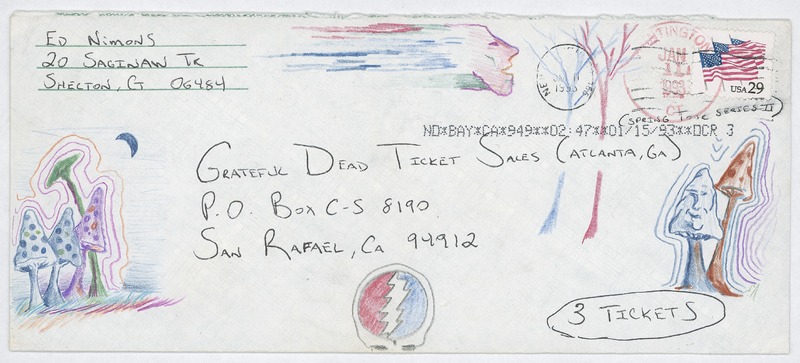 Ed Nimons
20 Saginaw Tr
Shelton, CT 06484
JAN
1993
CT
USA 29
(Spring Tour Series II)
ND*BAY*CA*949**02:47**01/15/93**OCR 3
Grateful Dead Ticket Sales (Atlanta, GA)
P.O. Box C-S 8190
San Rafael, Ca 94912
3 Tickets